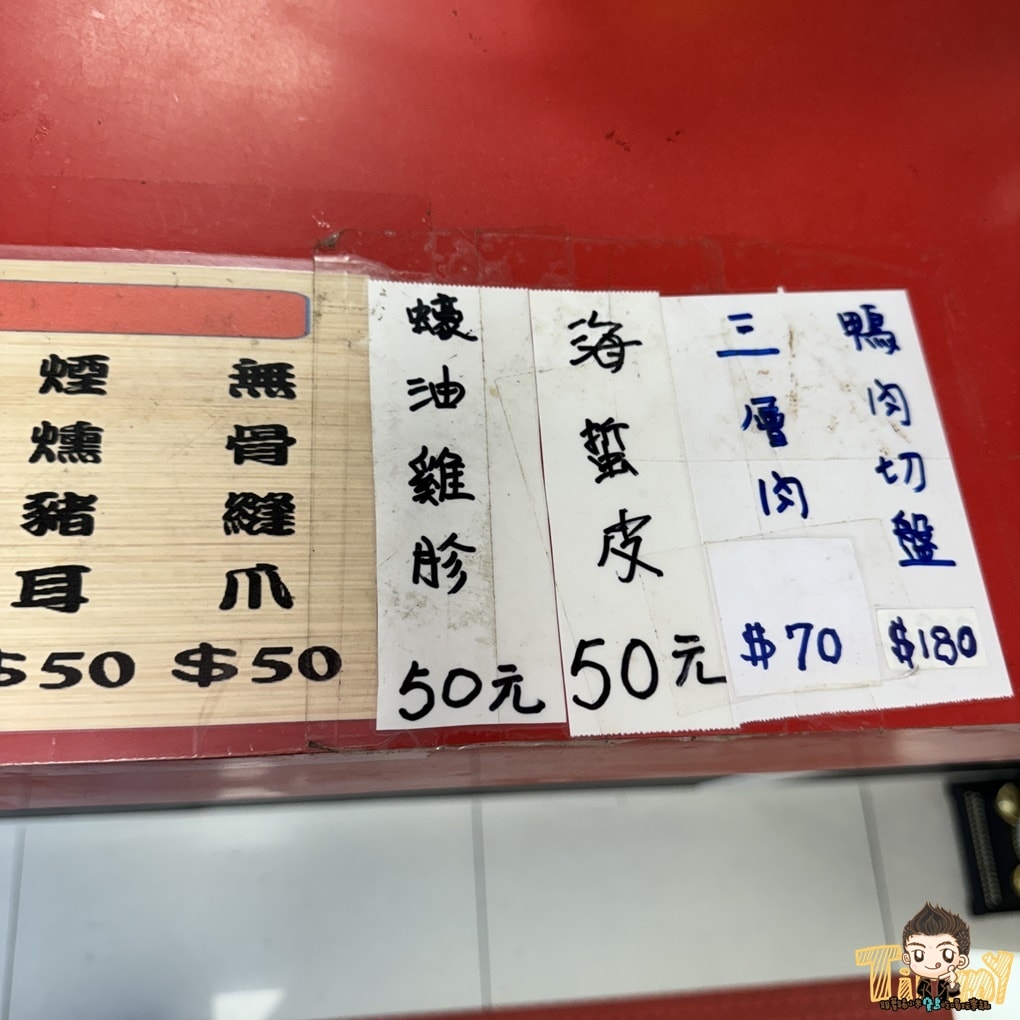 煙燻豬耳
$50
無骨縫爪
$50
蠔油雞胗
50元
海蜇皮
50元
三層肉
$70
鴨肉切盤
$180